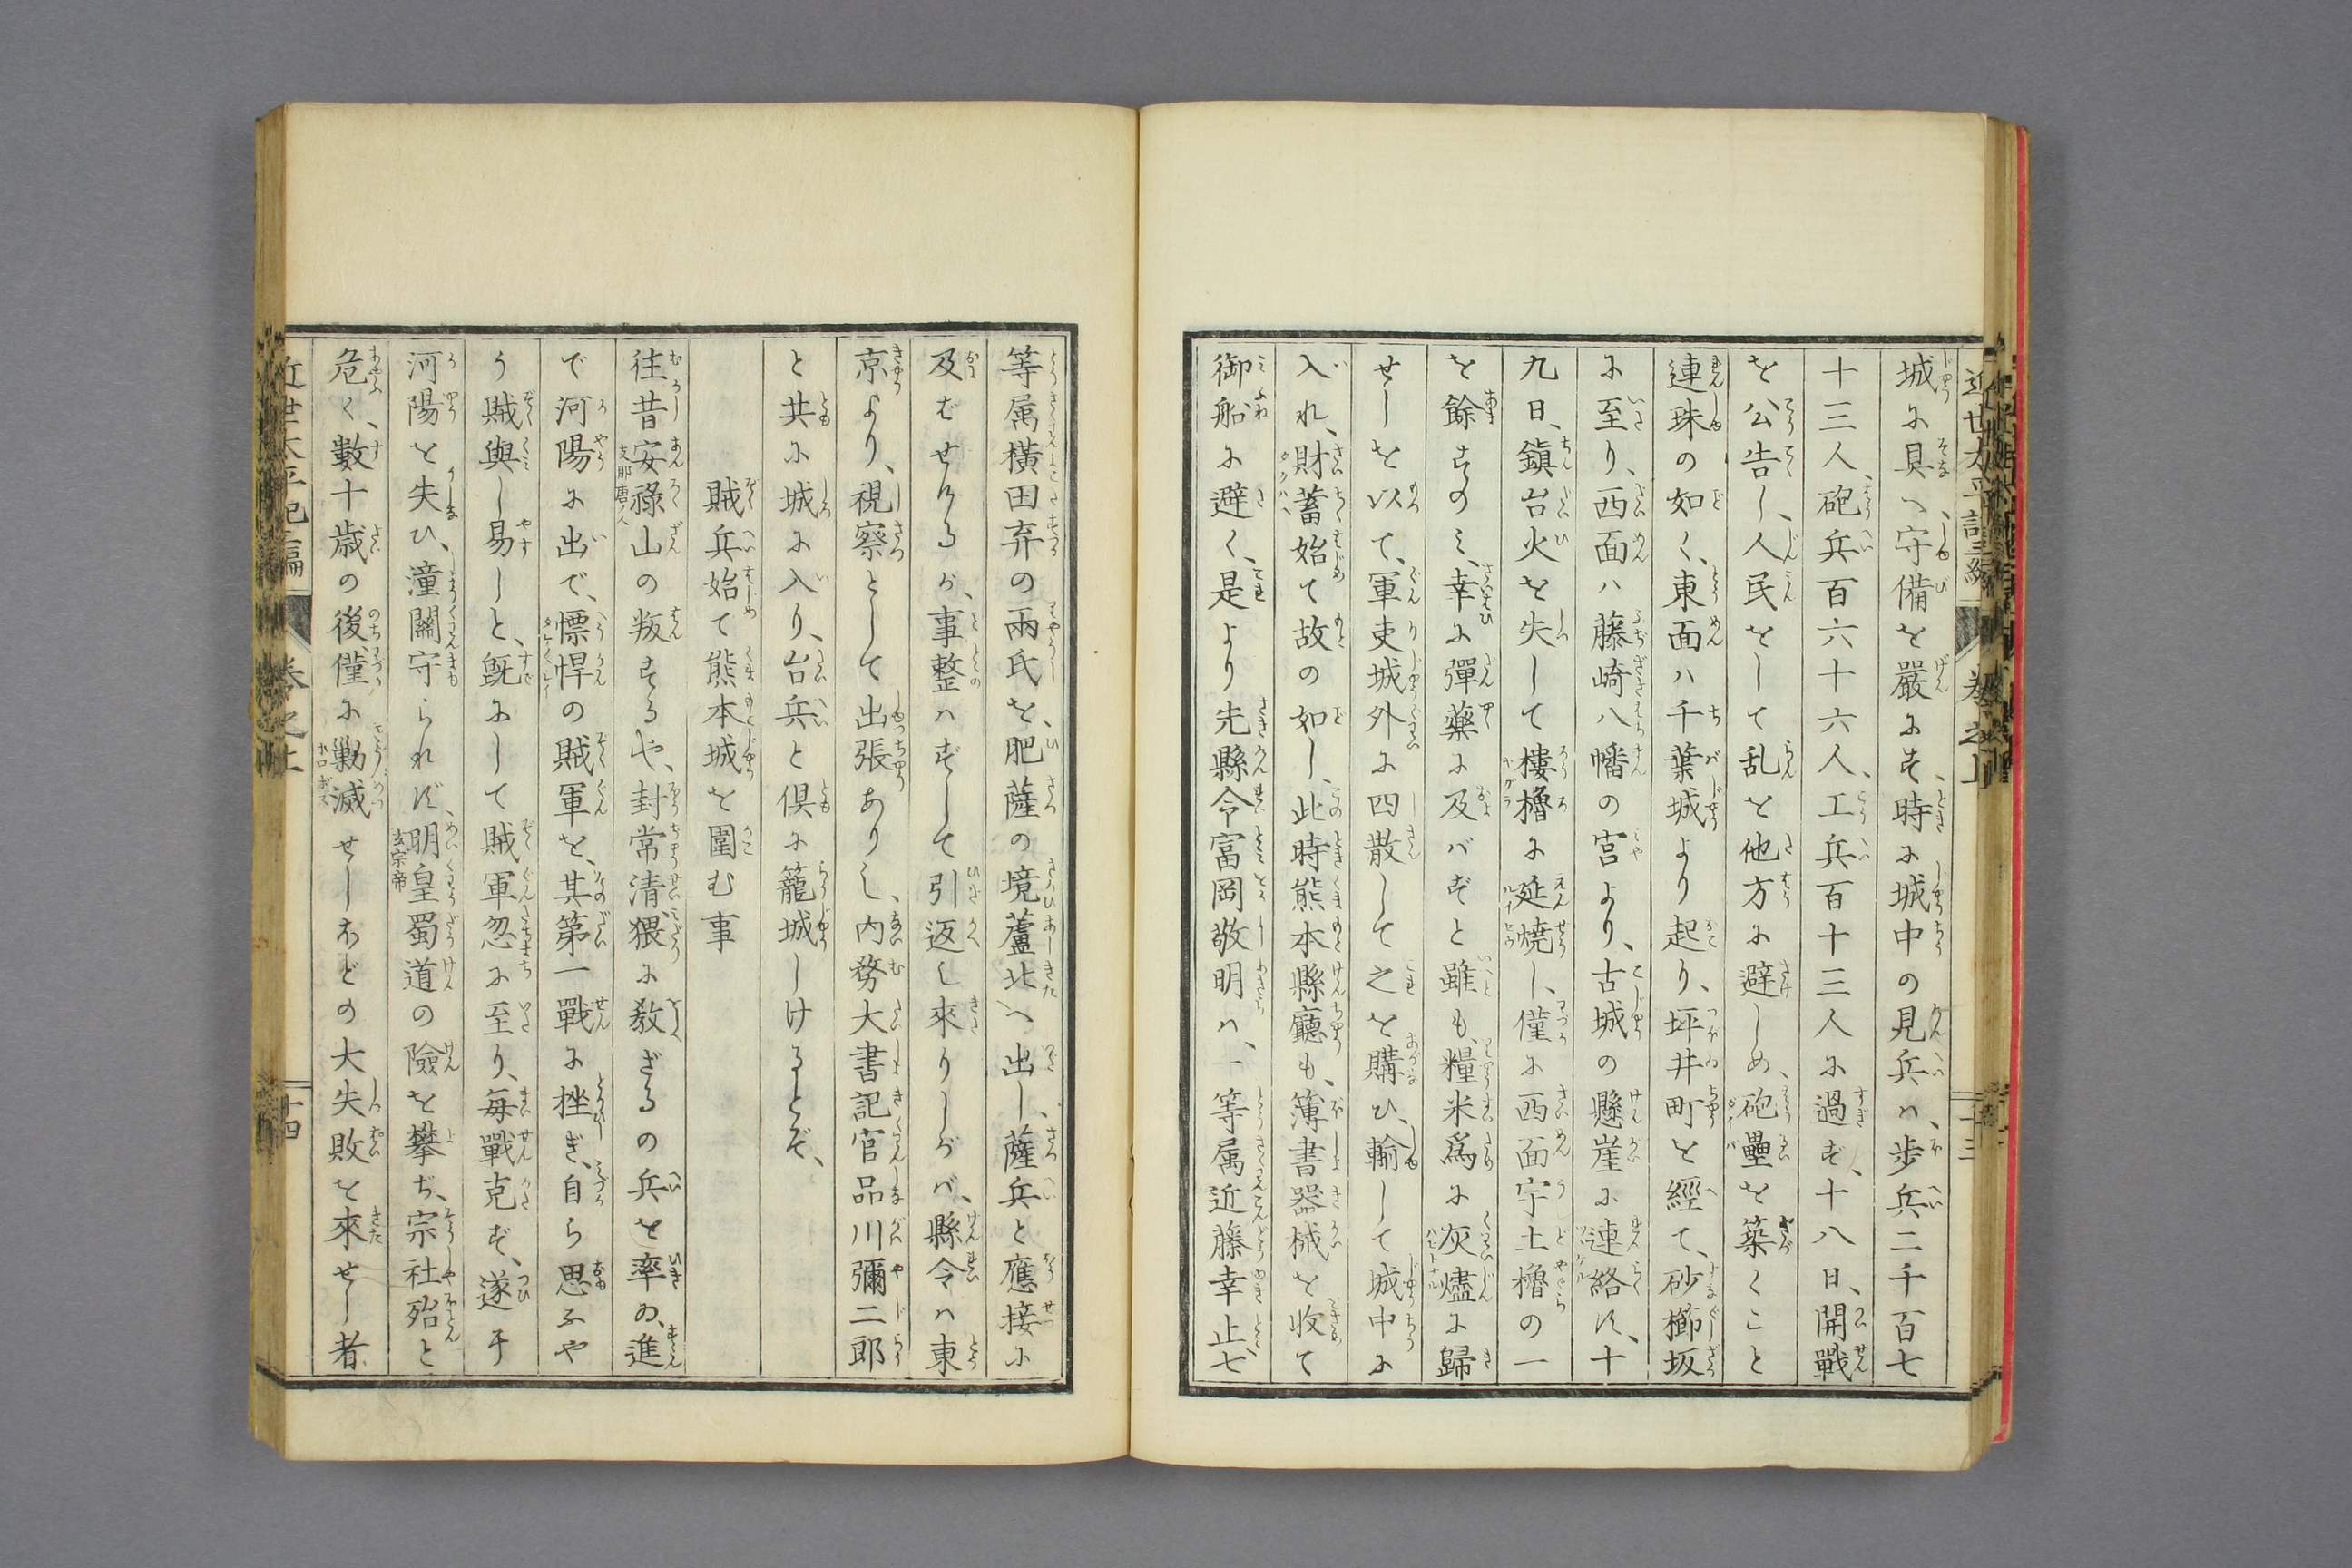 近世太平記三編 巻之上 十三
城に具へ、守備を嚴にす、時に城中の見兵ハ、歩兵二千百七
十三人、砲兵百六十六人、工兵百十三人に過ず、十八日、開戰
を公告し、人民をして乱を他方に避しめ、砲壘を築くこと
連珠の如く、東面ハ千葉城より起り、坪井町を經て、砂櫛坂
に至り、西面ハ藤崎八幡の宮より、古城の懸崖に連絡す、十
九日、鎭台火を失して樓櫓に延焼し、僅に西面宇土櫓の一
を餘すのミ、幸に彈藥に及バずと雖も、糧米爲に灰燼に歸
せしを以て、軍吏城外に四散して之を購ひ、輸して城中に
入れ、財蓄始て故の如し、此時熊本縣廳も、簿書器械を收て
御船に避く、是より先縣令富岡敬明ハ、一等属近藤幸止、七
等属横田弃の兩氏を、肥薩の境蘆北へ出し、薩兵と應接に
及むせけるが、事整ハずして引返し來りしがバ、縣令ハ東
京より、視察として出張ありし、内務大書記官品川彌二郎
と共に城に入り、台兵と倶に籠城しけるとぞ、
賊兵始て熊本城を圍む事
往昔安祿山の叛するや、封常清、猥に教ざるの兵を率ゐ、進
支那唐人
で河陽に出で、慓悍の賊軍を、其第一戰に挫ぎ、自ら思ふや
う賊與し易しと、既にして賊軍忽に至り、毎戰克ず、遂于
河陽を失ひ、潼關守られず、明皇蜀道の險を攀ぢ、宗社殆と
玄宗帝
危く、數十歳の後、僅に勦滅せしほどの大失敗を來せし者
近世太平記三編 巻之上 十四